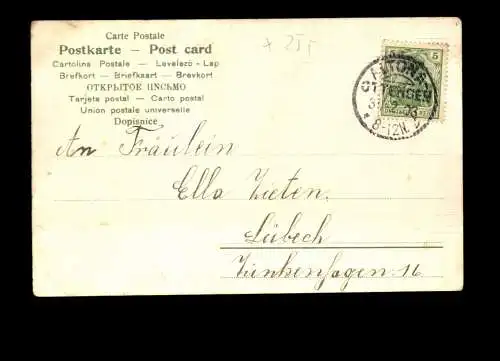 Carte Postale
Postkarte – Post card
Cartolina Postale – Levelezö - Lap
Brefkort – Briefkaart – Brevkort
ОТКРЫТОЕ ПИСЬМО
Tarjeta postal – Carto postal
Union postale universelle
Dopisnice
5
ALTONA
8-12N.
An Fräulein
Ella Zieten.
Lübeck
16